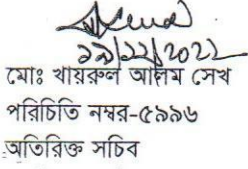 ২৯/১১/২০২২
মোঃ খায়রুল আলম সেখ
পরিচিতি নম্বর-৫৯৯৬
অতিরিক্ত সচিব